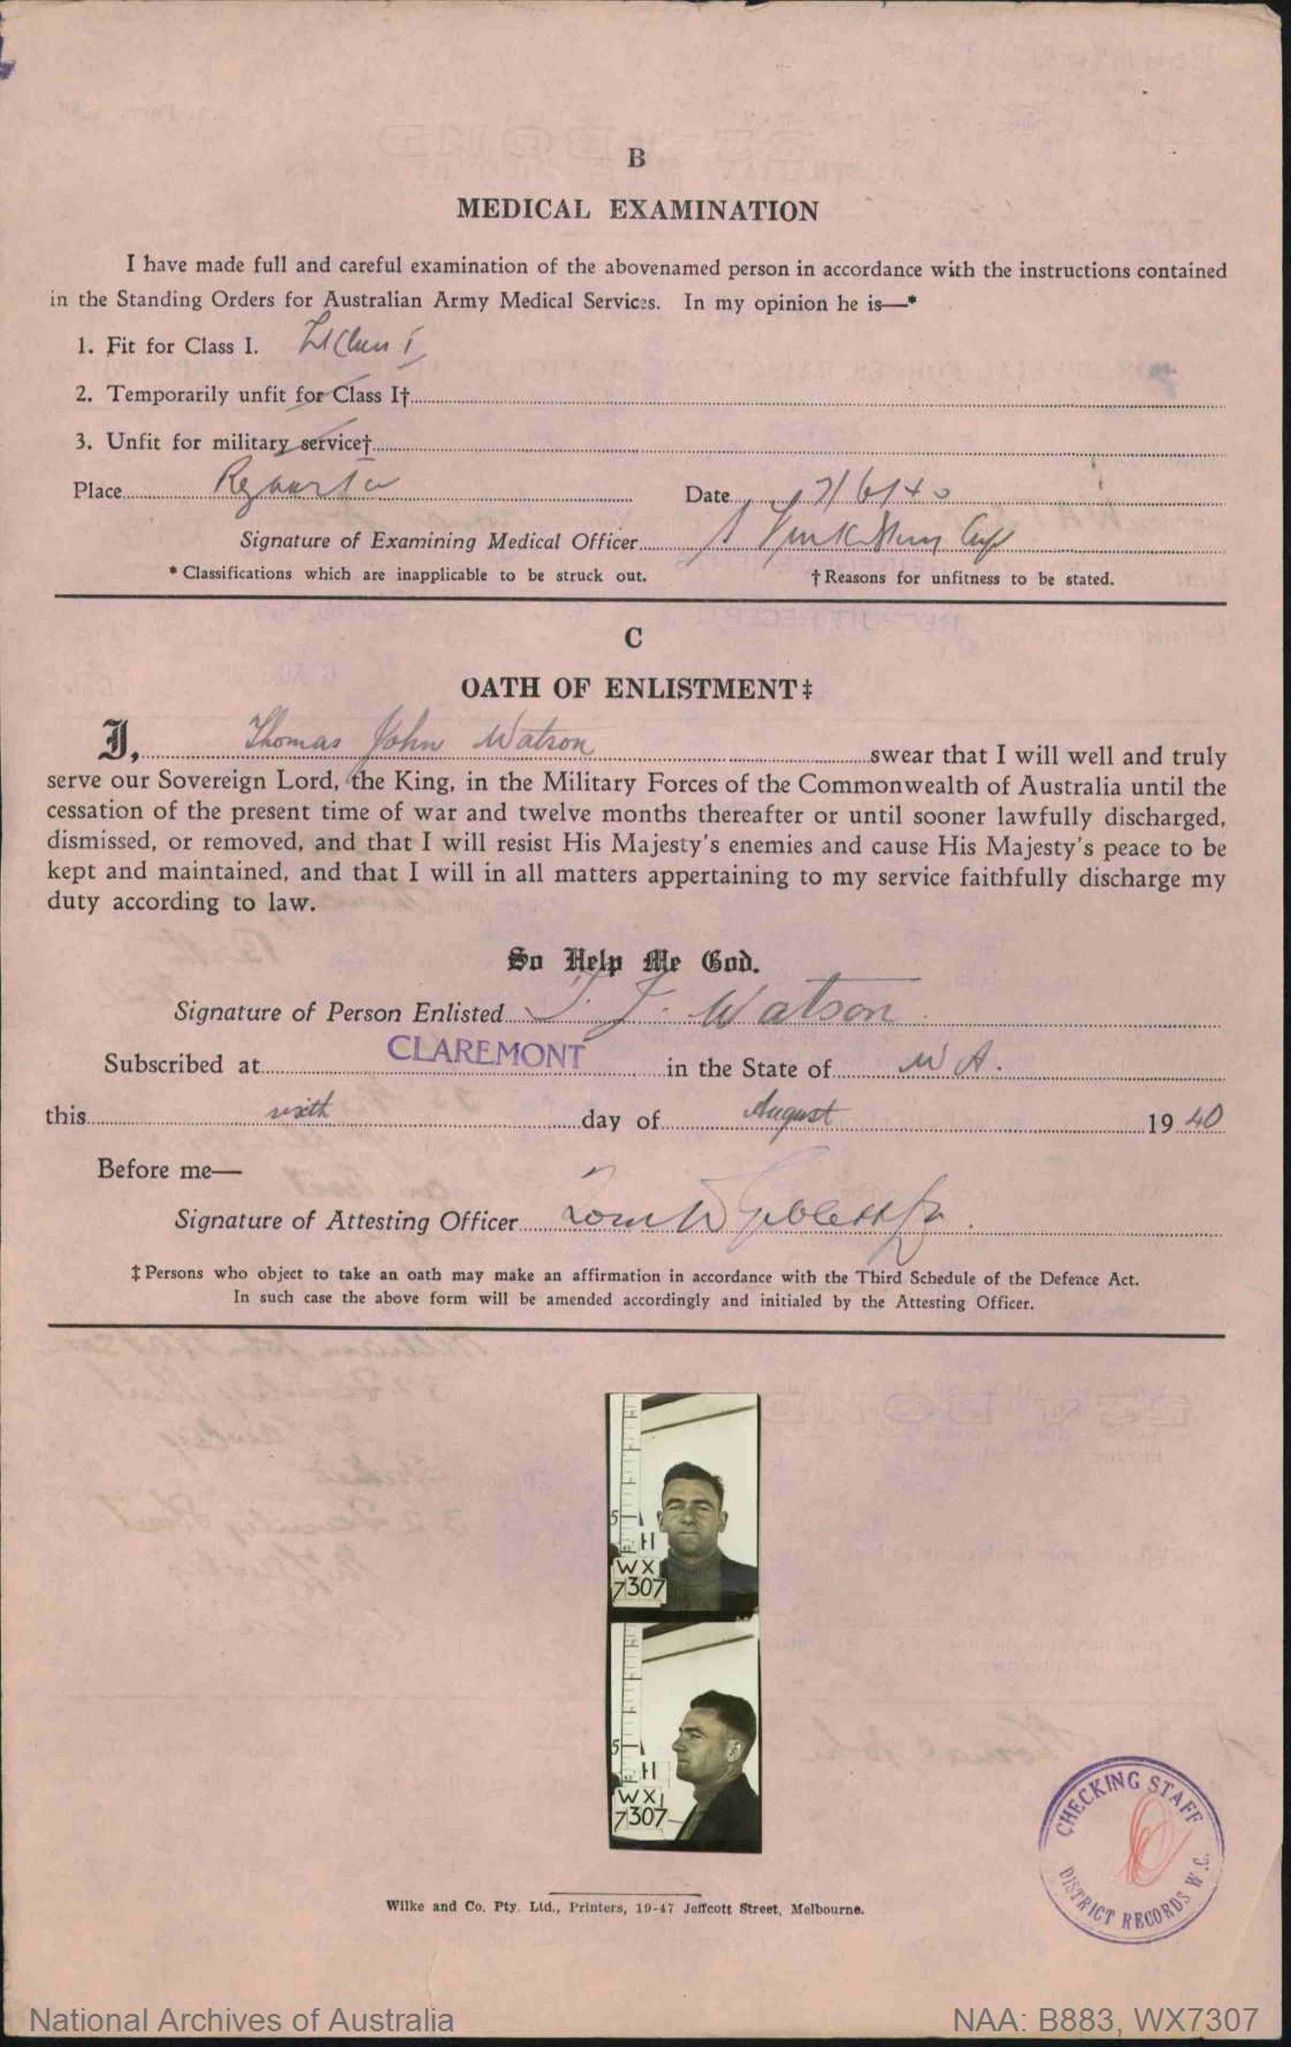 B
MEDICAL EXAMINATION
I have made full and careful examination of the abovenamed person in accordance with the instructions contained
in the Standing Orders for Australian Army Medical Services. In my opinion he is—*
1. Fit for Class I.
2. Temporarily unfit for Class I†
3. Unfit for military service†
Place Date
Signature of Examining Medical Officer
* Classifications which are inapplicable to be struck out. † Reasons for unfitness to be stated.
C
OATH OF ENLISTMENT‡
I, Thomas John Watson swear that I will well and truly
serve our Sovereign Lord, the King, in the Military Forces of the Commonwealth of Australia until the
cessation of the present time of war and twelve months thereafter or until sooner lawfully discharged,
dismissed, or removed, and that I will resist His Majesty's enemies and cause His Majesty's peace to be
kept and maintained, and that I will in all matters appertaining to my service faithfully discharge my
duty according to law.
So Help Me God.
Signature of Person Enlisted T. J. Watson
Subscribed at CLAREMONT in the State of W A.
this sixth day of August 1940
Before me—
Signature of Attesting Officer
‡ Persons who object to take an oath may make an affirmation in accordance with the Third Schedule of the Defence Act.
In such case the above form will be amended accordingly and initialed by the Attesting Officer.
5
H
WX
7307
5
H
WX
7307
CHECKING STAFF
DISTRICT RECORDS W.C.
Wilke and Co. Pty. Ltd., Printers, 19-47 Jeffcott Street, Melbourne.
National Archives of Australia NAA: B883, WX7307